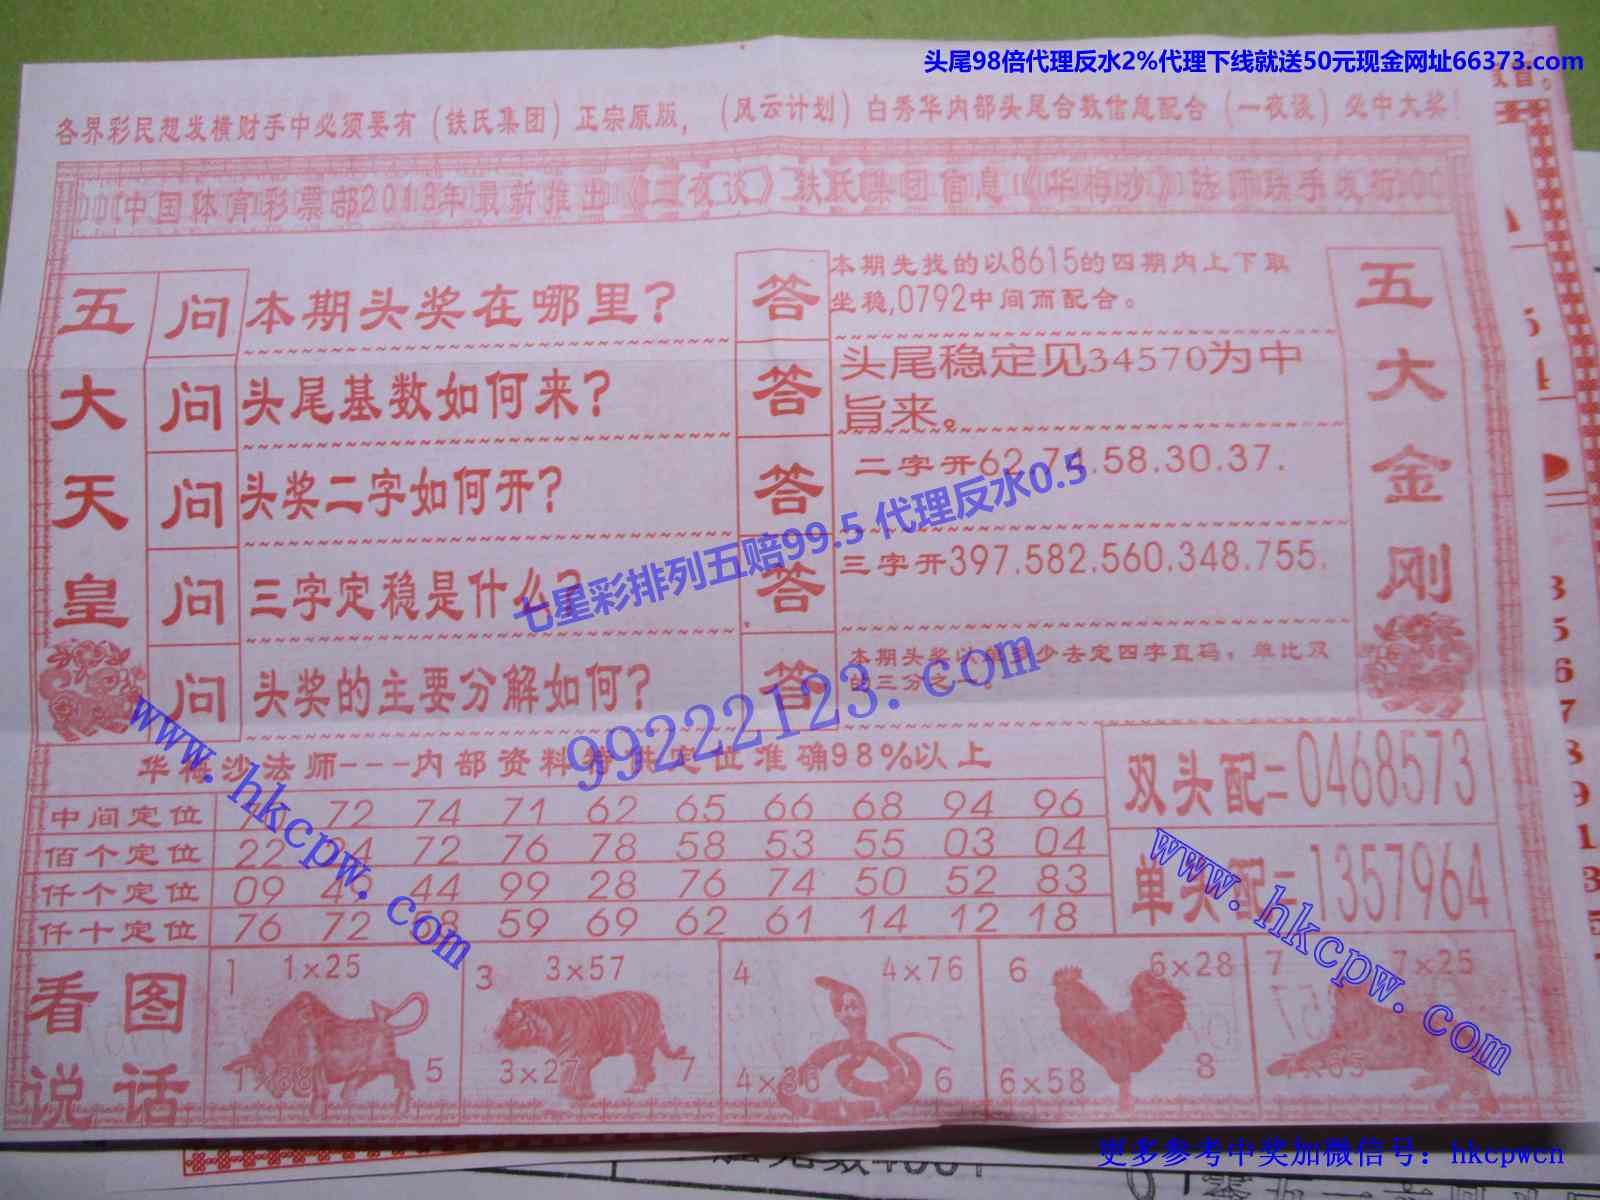 头尾98倍代理反水2%代理下线就送50元现金网址66373.com
各界彩民想发横财手中必须要有(铁氏集团)正宗原版,(风云计划)白秀华内部头尾合数信息配合(一夜谈)必中大奖!
中国体育彩票部2013年最新推出《二夜谈》铁氏集团信息《华梅沙》法师联手发行
五大天皇
问 本期头奖在哪里?
答 本期先找的以8615的四期内上下取
坐稳,0792中间而配合。
问 头尾基数如何来?
答 头尾稳定见34570为中
旨来。
问 头奖二字如何开?
答 二字开62.74.58.30.37.
问 三字定稳是什么?
答 三字开397.582.560.348.755.
问 头奖的主要分解如何?
答 本期头奖以 少去定四字直码,单比双
的三分之一。
五大金刚
七星彩排列五赔99.5 代理反水0.5
99222123.com
www.hkcpw.com
华梅沙法师---内部资料 供定位准确98%以上
中间定位 72 74 71 62 65 66 68 94 96
佰个定位 22 72 76 78 58 53 55 03 04
仟个定位 09 44 99 28 76 74 50 52 83
仟十定位 76 72 59 69 62 61 14 12 18
双头配=0468573
单头配=1357964
www.hkcpw.com
看图说话
1 1×25
1×88 5
3 3×57
3×27 7
4 4×76
4×36 6
6 6×28
6×58 8
7 7×25
7×65
更多参考中奖加微信号:hkcpwcn